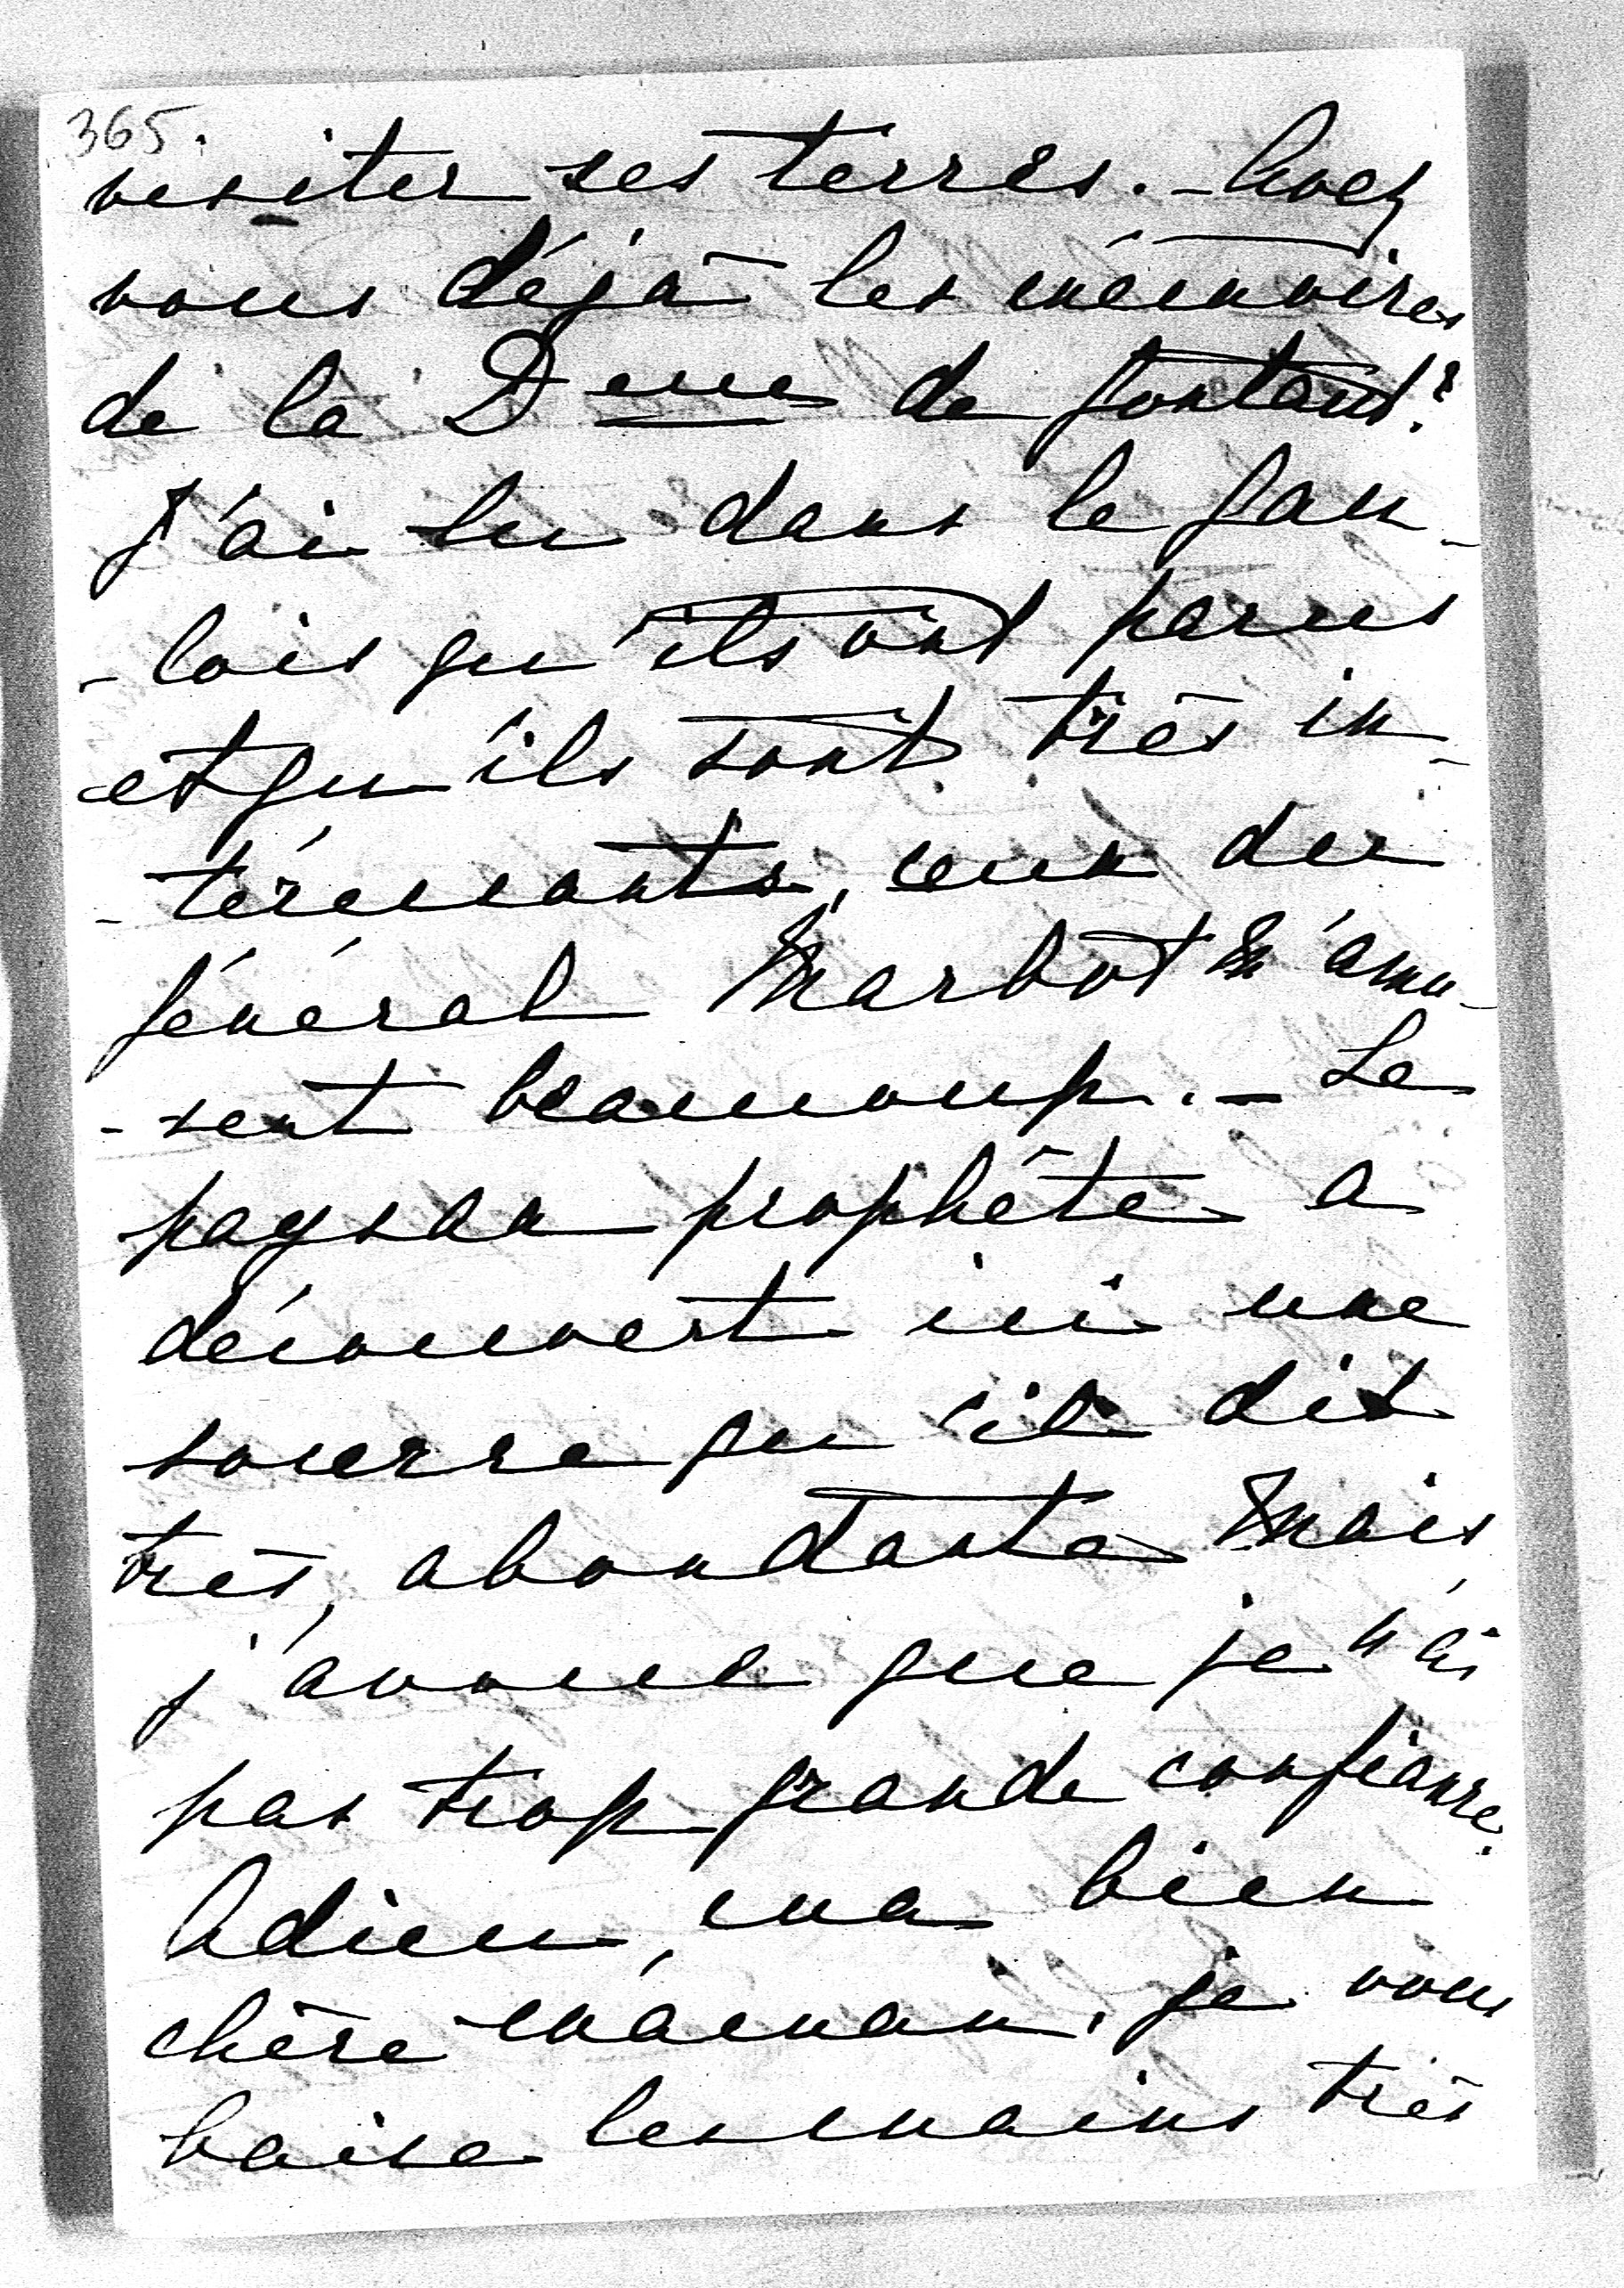 365.
visiter ses terres. - Avez
vous déjà les mémoires
de la D esse de Gontaut?
J'ai lu dans le Gau-
-lois qu'ils ont parus
et qu'ils sont très in-
-téressants, ceux du
général Marbot m'amu-
-sent beaucoup. - Le
paysan prophète a
découvert ici une
source qu'il dit
très, abondante mais
j'avoue que je n'ai
pas trop grande confiance.
Adieu, ma bien
chère maman, je vous
baise les mains très